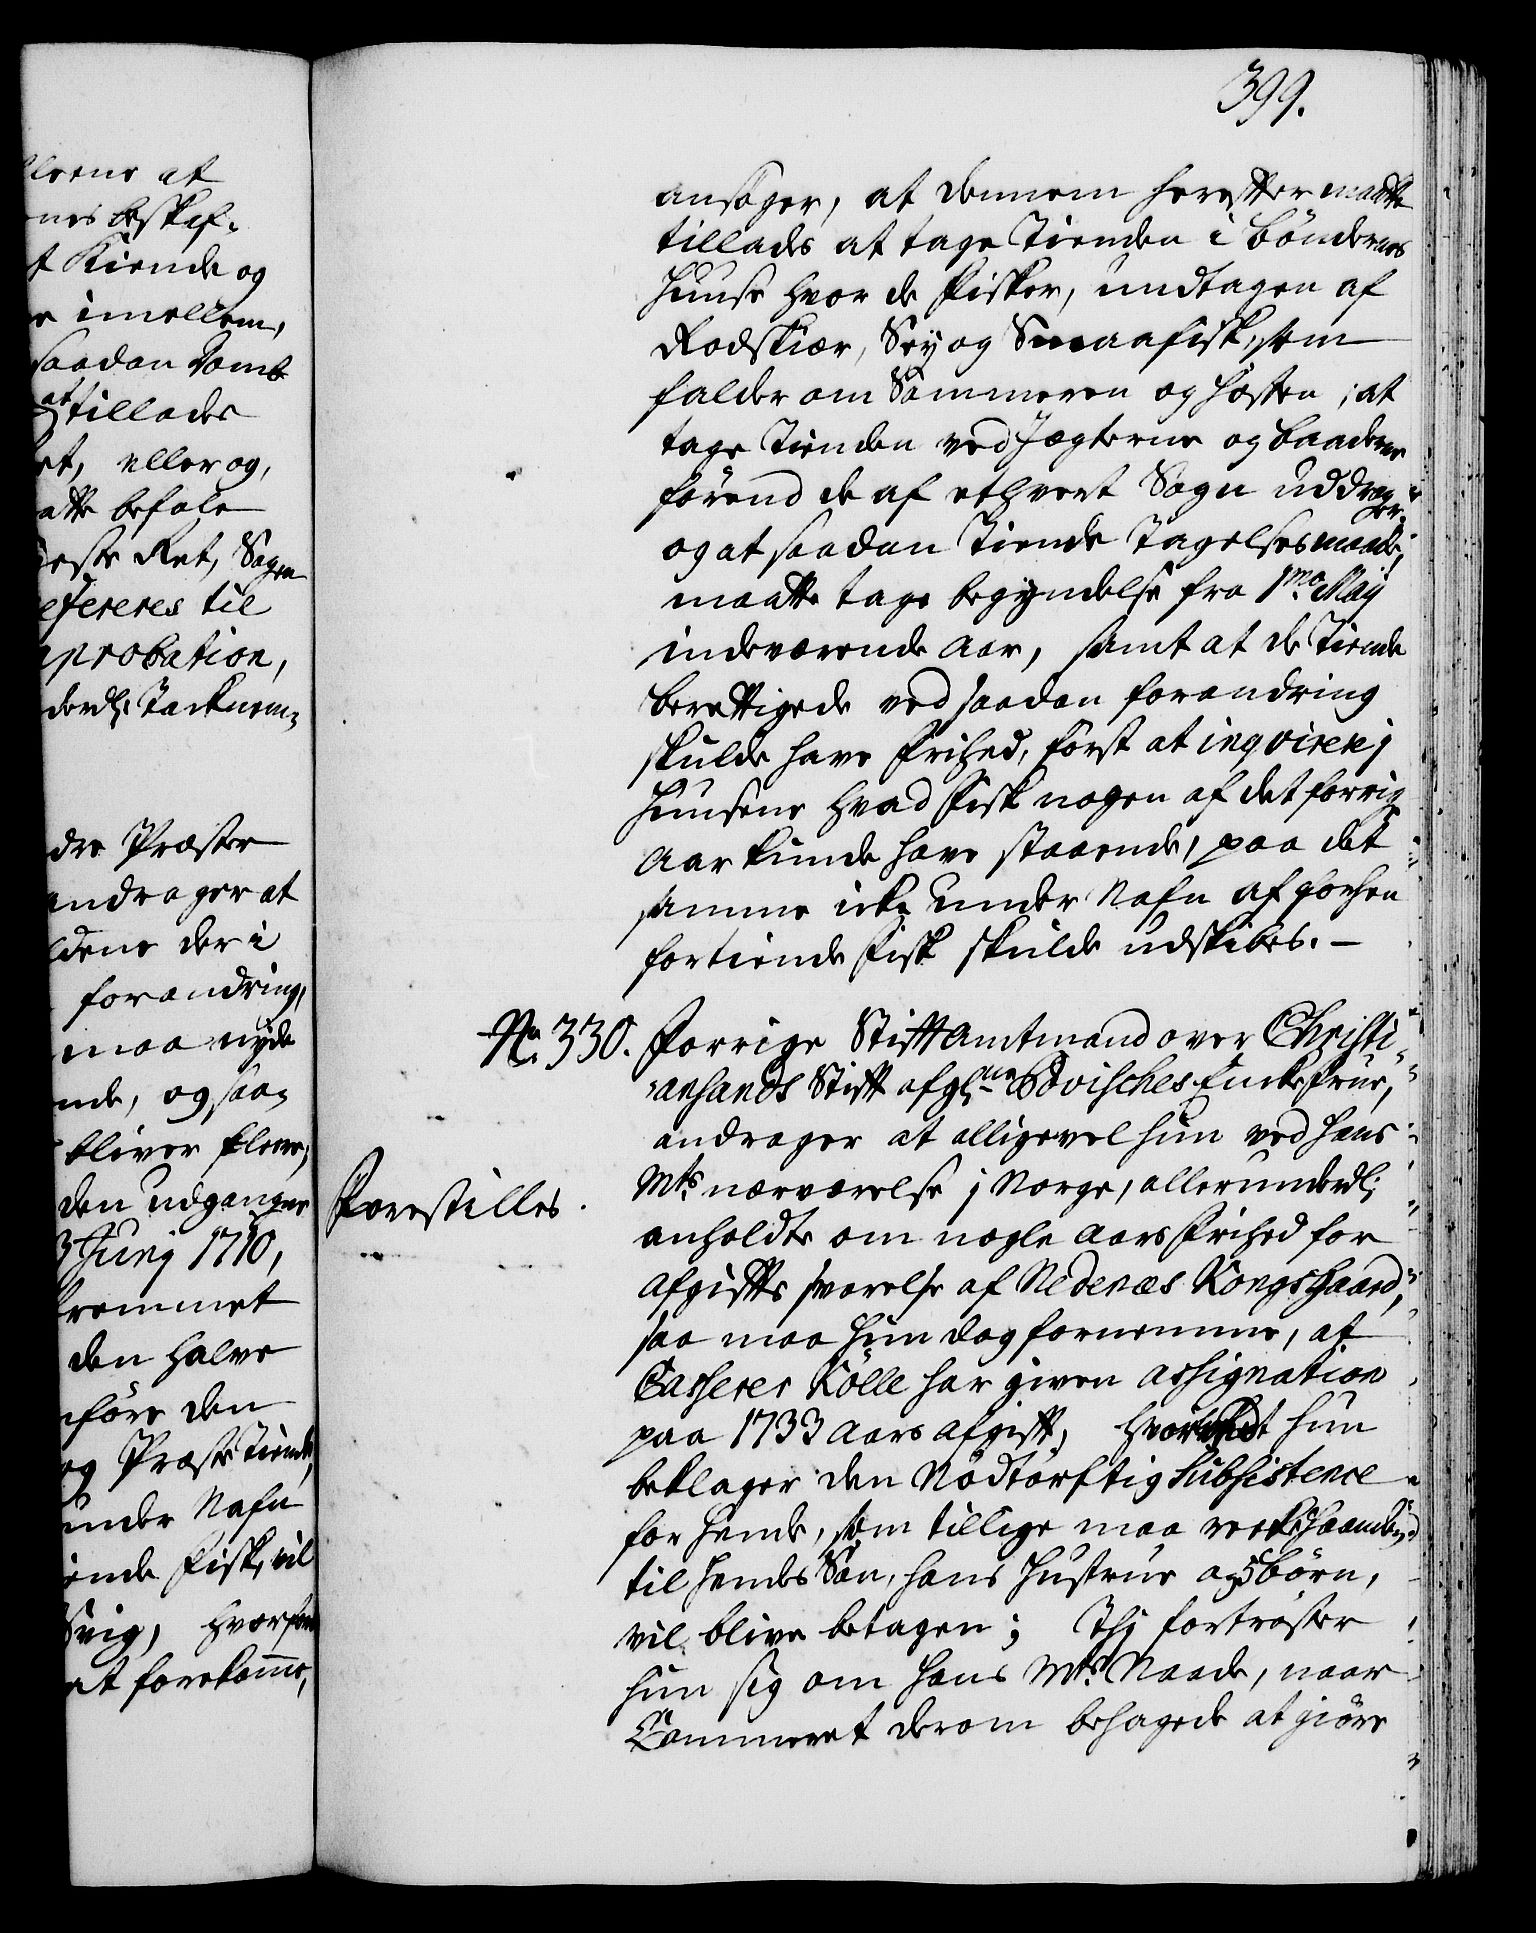 399.
ansøger, at dennem herefter maatte
tillades at tage Tienden i Bøndernes
Huuse hvor de fisker, undtagen af
Rodskiær, Sey og Smaafisk, som
falder om Sommeren og Høsten; at
tage Tienden ved Jægterne og Baaderne
førend de af ethvert Sogn uddrager
og at saadan Tiende Tagelsesmaade,
maatte tage begyndelse fra 1mo May
indeværende Aar, samt at de Tiende
berettigede ved saadan forandring
skulde have frihed, først at inqvirere j
Huusene hvad Fisk nogen af det forrige
Aar kunde have staaende, paa det
samme icke under Nafn af forhen
fortiende Fisk skulde udskibes.
No. 330. Forrige Stiftamtmand over Christi-
-ansands Stift afgl. Povisches Encke frue,
andrager at alligevel hun ved Hans
Mts. nærværelse j Norge, allerunderdl:
anholdte om nogle Aars frihed for
Afgifts svarelse af Nedenæs Kongsgaard,
saa maa hun dog fornemme, at
Casserer Kölle har given assignation
paa 1733 Aars Afgift, hvorved hun
beklager den Nødtørftig Subsistence
for hende, som tillige maa række haanden
til hendes Søn, hans Hustrue og 5 børn,
vil blive betagen; Thj fortrøster
hun sig om Hans Mts. Naade, naar
Cammeret derom behagede at giøre
Forestilles.
lerne at
nes beskaf-
t Kiende og
e imellem,
saadan Tomt
at tillades
et, eller og,
atte befale
este Ret, Sagen
efereres til
probation,
derdl. Tacknem-
dre Præster
andrager at
dene der i
forandring,
maa nyde
nde, og saa-
bliver flere,
den udganger
3 Junij 1710,
frommet
den halve
nføre den
og Præste Tiende,
under Nafn
iende Fisk, vil
Svig, hvorfor
at forekomme,